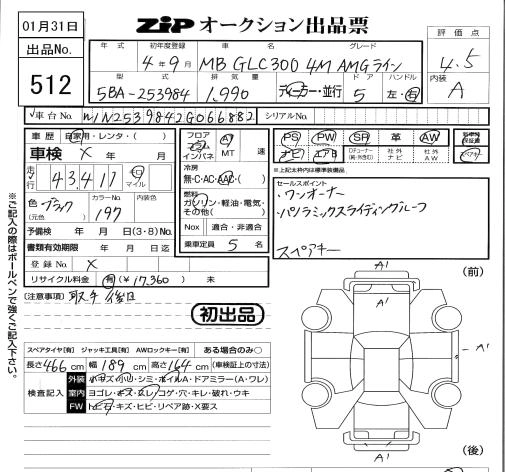 01月31日
ZiP オークション出品票
出品No.
512
評価点
4.5
内装
A
年式 初年度登録 車名 グレード
4年9月 MB GLC300 4M AMGライン
型式 排気量 ドア ハンドル
5BA-253984 1,990 ディーラー・並行 5 左・右
車台No. W1N2539842G066882 シリアルNo.
車歴 自家用・レンタ・( )
車検 × 年 月
走行 43,417 キロ マイル
色 ブラック カラーNo. 197 内装色
(元色)
予備検 年 月 日(3・8)No.
書類有効期限 年 月 日迄
登録No. ×
リサイクル料金 有(¥17,360) 無
フロア コラム インパネ AT MT 速
冷房
無・C・AC・AAC・( )
燃料
ガソリン・軽油・電気・その他( )
Nox 適合・非適合
乗車定員 5 名
PS PW SR 革 AW 新車時保証書
ナビ エアB 社外ナビ 社外AW スペアキー
※上記太枠内は標準装備品
セールスポイント
・ワンオーナー
・パノラミックスライディングルーフ
スペアキー
(注意事項) 取手 後日
初出品
スペアタイヤ[有] ジャッキ工具[有] AWロックキー[有] ある場合のみ○
長さ466cm 幅189cm 高さ164cm (車検証上の寸法)
検査記入
外装 小キズ・小凹・シミ・ホイルA・ドアミラー(A・ワレ)
室内 ヨゴレ・キズ・スレ・コゲ・穴・キレ・破れ・ウキ
FW トビ石・キズ・ヒビ・リペア跡・X要ス
※ご記入の際はボールペンで強くご記入下さい。
A'
(前)
A'
A'
A'
A'
(後)